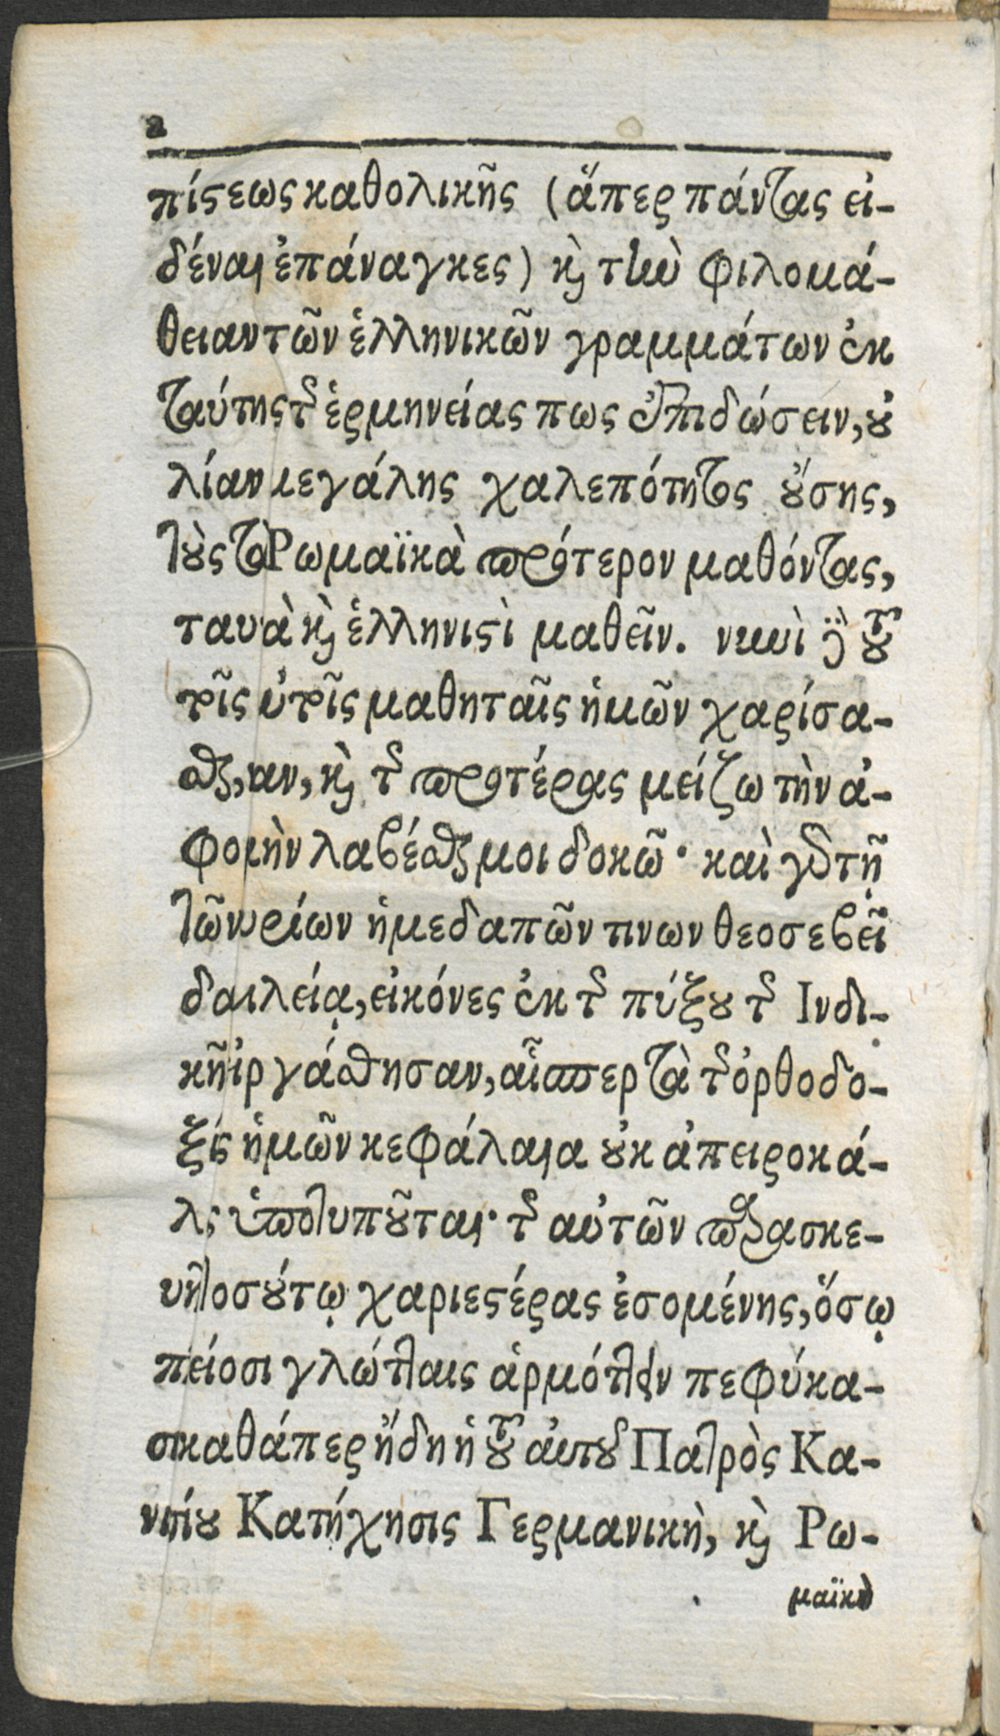 2
πίστεως καθολικῆς (ἅπερ πάντας εἰ-
δέναι ἐπάναγκες) καὶ τὴν φιλομά-
θειαν τῶν ἑλληνικῶν γραμμάτων ἐκ
ταύτης τῆς ἑρμηνείας πως ἐπιδώσειν, οὐ
λίαν μεγάλης χαλεπότητος οὔσης,
τοὺς τὰ Ρωμαϊκὰ πρότερον μαθόντας,
ταυτὰ καὶ ἑλληνιστὶ μαθεῖν. νυνὶ δὲ τοῦ
τοῖς αὐτοῖς μαθηταῖς ἡμῶν χαρίσα-
σθαι, καὶ τῆς προτέρας μείζω τὴν ἀ-
φορμὴν λαβέσθαι μοι δοκῶ· καὶ γὰρ τῇ
τῶν κυρίων ἡμεδαπῶν τινων θεοσεβεῖ
δαψιλείᾳ, εἰκόνες ἐκ τῆς πύξου τῆς Ινδι-
κῆς εἰργάσθησαν, αἷσπερ τὰ τῆς ὀρθοδο-
ξίας ἡμῶν κεφάλαια οὐκ ἀπειροκά-
λως ὑποτυποῦται· τῆς αὐτῶν παρασκε-
υῆς τοσούτῳ χαριεστέρας ἐσομένης, ὅσῳ
πλείοσι γλώτταις ἁρμόττειν πεφύκα-
σι καθάπερ ἤδη ἡ τοῦ αὐτοῦ Πατρὸς Κα-
νισίου Κατήχησις Γερμανικὴ, καὶ Ρω-
μαϊκὴ